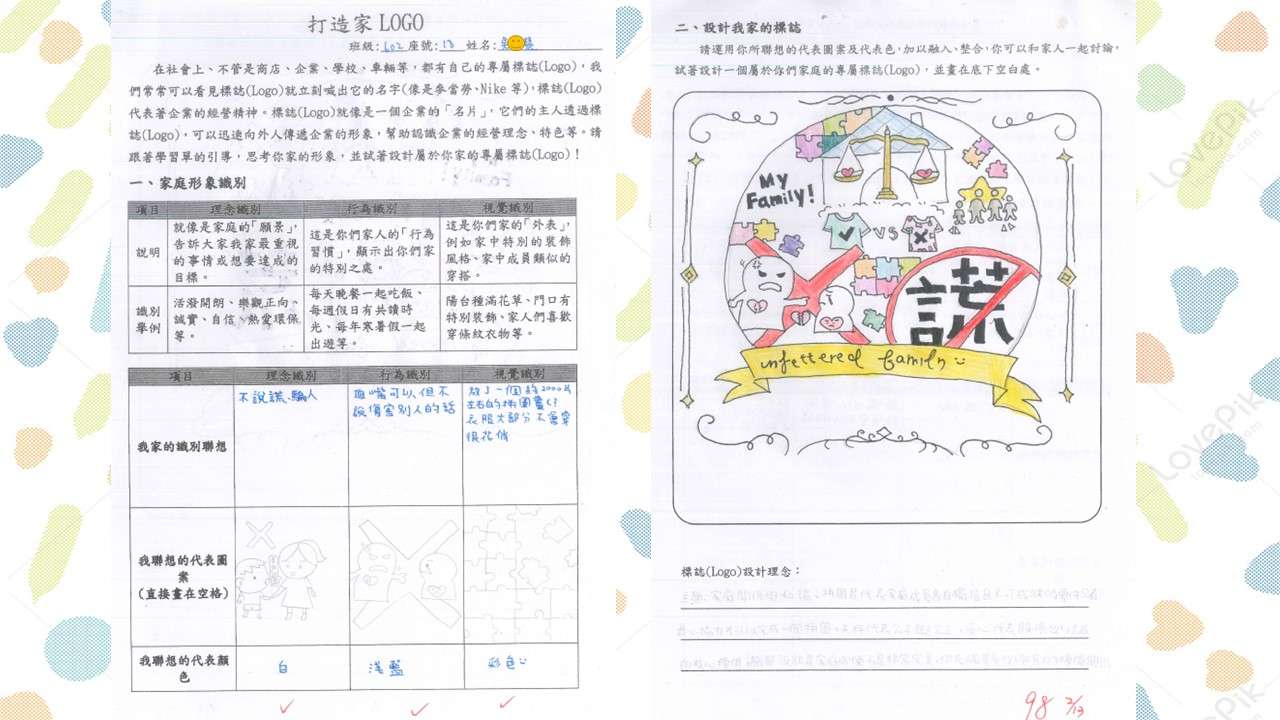 打造家 LOGO
班級: 602 座號: 13 姓名:
在社會上、不管是商店、企業、學校、車輛等,都有自己的專屬標誌(Logo),我
們常常可以看見標誌(Logo)就立刻喊出它的名字(像是麥當勞、Nike 等),標誌(Logo)
代表著企業的經營精神。標誌(Logo)就像是一個企業的「名片」,它們的主人透過標
誌(Logo),可以迅速向外人傳遞企業的形象,幫助認識企業的經營理念、特色等。請
跟著學習單的引導,思考你家的形象,並試著設計屬於你家的專屬標誌(Logo)!
一、家庭形象識別
項目 理念識別 行為識別 視覺識別
說明
就像是家庭的「願景」,
告訴大家我家最重視
的事情或想要達成的
目標。
這是你們家人的「行為
習慣」,顯示出你們家
的特別之處。
這是你們家的「外表」,
例如家中特別的裝飾
風格、家中成員類似的
穿搭。
識別
舉例
活潑開朗、樂觀正向、
誠實、自信、熱愛環保
等。
每天晚餐一起吃飯、
每週假日有共讀時
光、每年寒暑假一起
出遊等。
陽台種滿花草、門口有
特別裝飾、家人們喜歡
穿條紋衣物等。
項目 理念識別 行為識別 視覺識別
我家的識別聯想
不說謊、騙人
頂嘴可以,但不
說傷害別人的話
放了一個約2000片
左右的拼圖畫
衣服大部分不會穿
很花俏
我聯想的代表圖
案
(直接畫在空格)
我聯想的代表顏
色
白
淺藍
彩色
二、設計我家的標誌
請運用你所聯想的代表圖案及代表色,加以融入、整合,你可以和家人一起討論,
試著設計一個屬於你們家庭的專屬標誌(Logo),並畫在底下空白處。
My
Family!
VS
謊
unfettered family
標誌(Logo)設計理念:
98 2/13
LovePik
LovePik